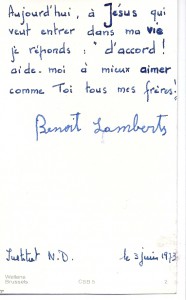 Aujourd'hui, à Jésus qui
veut entrer dans ma vie
je réponds : "d'accord !
aide-moi à mieux aimer
comme Toi tous mes frères!
Benoît Lamberts
Institut N.D. le 3 juin 1973
Bruxelles